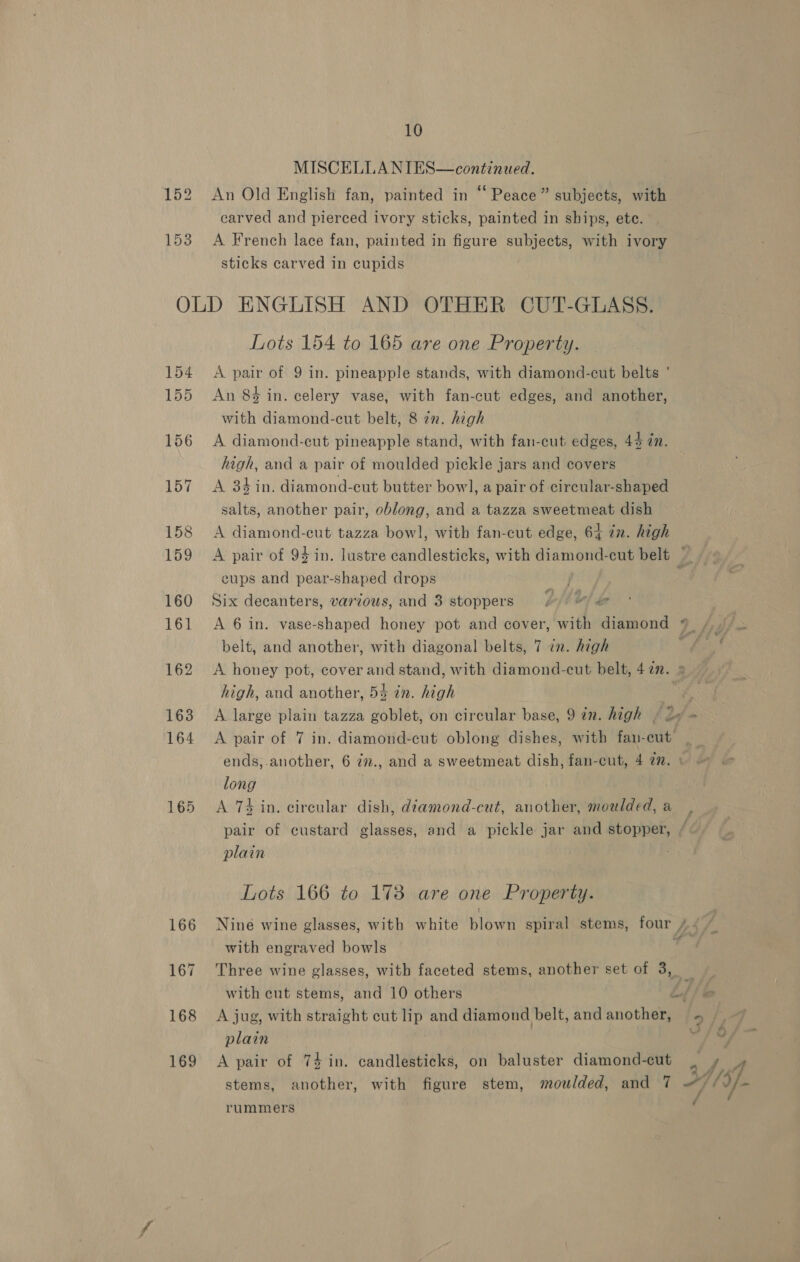 10
MISCELLANIES—continued.
152 An Old English fan, painted in “Peace” subjects, with
carved and pierced ivory sticks, painted in ships, etc.
153 A French lace fan, painted in figure subjects, with ivory
sticks carved in cupids
OLD ENGLISH AND OTHER CUT-GLASS.
Lots 154 to 165 are one Property.
154 A pair of 9 in. pineapple stands, with diamond-cut belts
155 An 8½ in. celery vase, with fan-cut edges, and another,
with diamond-cut belt, 8 in. high
156 A diamond-cut pineapple stand, with fan-cut edges, 4½ in.
high, and a pair of moulded pickle jars and covers
157 A 3½ in. diamond-cut butter bowl, a pair of circular-shaped
salts, another pair, oblong, and a tazza sweetmeat dish
158 A diamond-cut tazza bowl, with fan-cut edge, 6¼ in. high
159 A pair of 9½ in. lustre candlesticks, with diamond-cut belt
cups and pear-shaped drops
160 Six decanters, various, and 3 stoppers
161 A 6 in. vase-shaped honey pot and cover, with diamond
belt, and another, with diagonal belts, 7 in. high
162 A honey pot, cover and stand, with diamond-cut belt, 4 in.
high, and another, 5½ in. high
163 A large plain tazza goblet, on circular base, 9 in. high
164 A pair of 7 in. diamond-cut oblong dishes, with fan-cut
ends, another, 6 in., and a sweetmeat dish, fan-cut, 4 in.
long
165 A 7½ in. circular dish, diamond-cut, another, moulded, a
pair of custard glasses, and a pickle jar and stopper,
plain
Lots 166 to 173 are one Property.
166 Nine wine glasses, with white blown spiral stems, four
with engraved bowls
167 Three wine glasses, with faceted stems, another set of 3,
with cut stems, and 10 others
168 A jug, with straight cut lip and diamond belt, and another,
plain
169 A pair of 7½ in. candlesticks, on baluster diamond-cut
stems, another, with figure stem, moulded, and 7
rummers